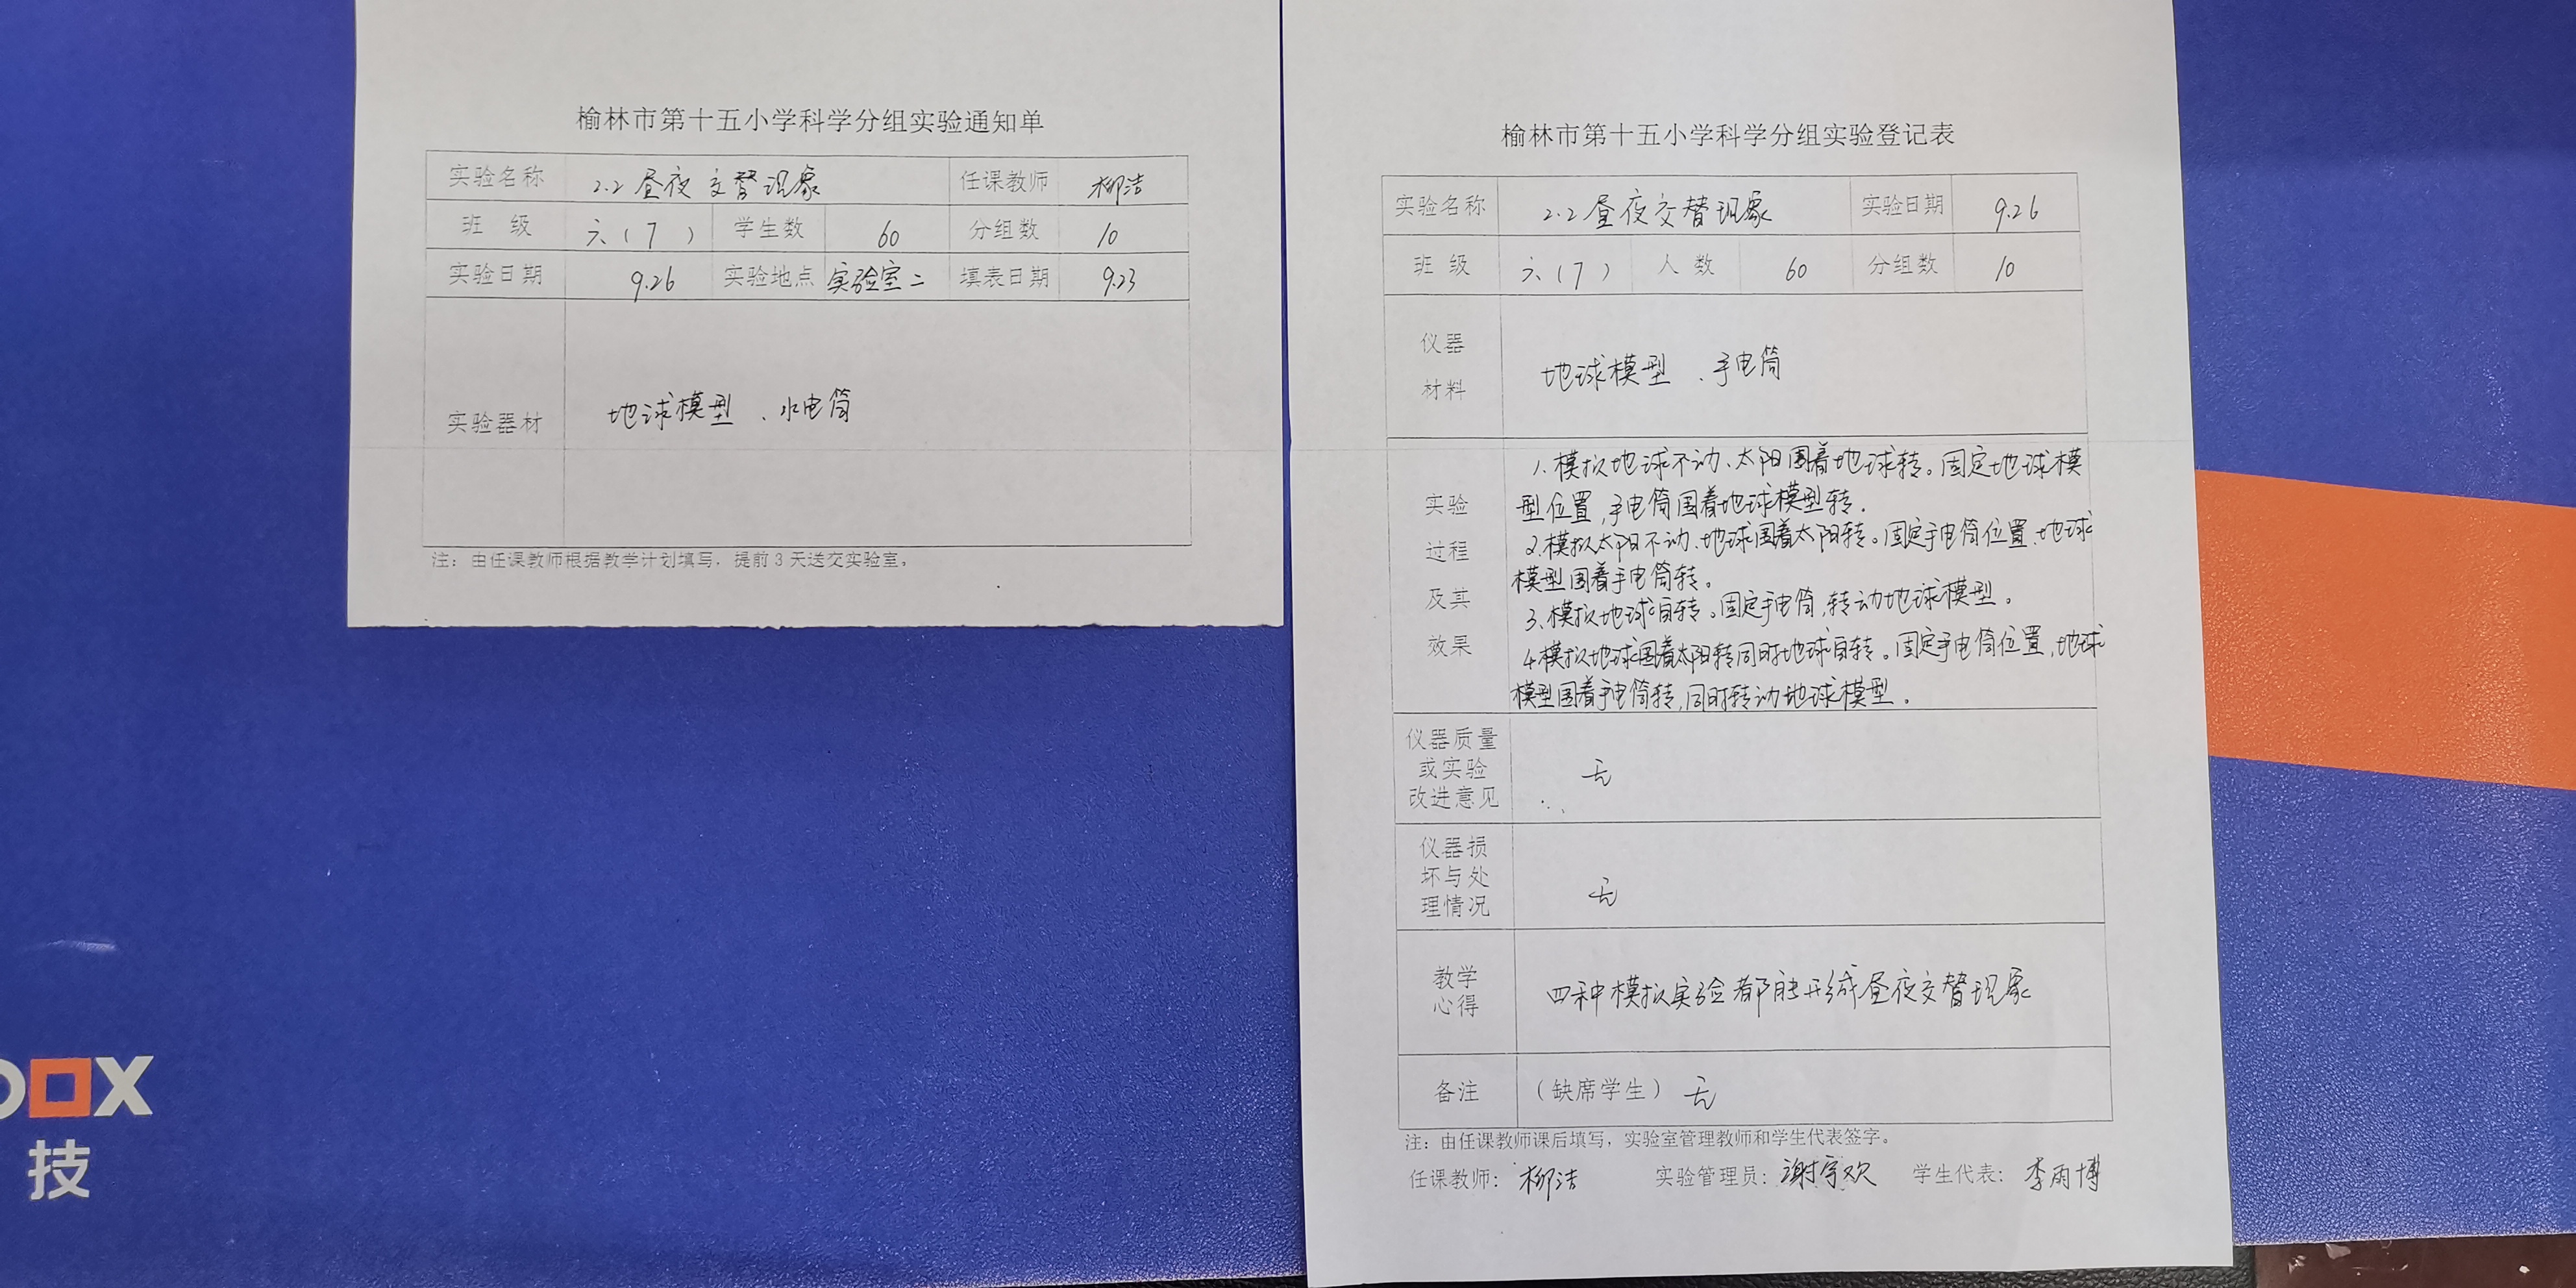 榆林市第十五小学科学分组实验通知单
实验名称 2.2 昼夜交替现象 任课教师 柳洁
班 级 六（7） 学生数 60 分组数 10
实验日期 9.26 实验地点 实验室二 填表日期 9.23
实验器材 地球模型、水电筒
注：由任课教师根据教学计划填写，提前3天送交实验室。
榆林市第十五小学科学分组实验登记表
实验名称 2.2昼夜交替现象 实验日期 9.26
班 级 六（7） 人 数 60 分组数 10
仪器
材料
地球模型、手电筒
实验
过程
及其
效果
1.模拟地球不动、太阳围着地球转。固定地球模
型位置,手电筒围着地球模型转.
2.模拟太阳不动、地球围着太阳转。固定手电筒位置、地球
模型围着手电筒转。
3、模拟地球自转。固定手电筒,转动地球模型。
4.模拟地球围着太阳转同时地球自转。固定手电筒位置,地球
模型围着手电筒转,同时转动地球模型。
仪器质量
或实验
改进意见
无
仪器损
坏与处
理情况
无
教学
心得
四种模拟实验都能形成昼夜交替现象
备注 （缺席学生）无
注：由任课教师课后填写，实验室管理教师和学生代表签字。
任课教师：柳洁 实验管理员：谢宇欢 学生代表：李雨博
box
技